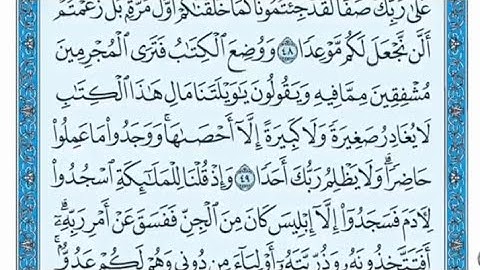 عَلَىٰ رَبِّكَ صَفًّا لَّقَدْ جِئْتُمُونَا كَمَا خَلَقْنَٰكُمْ أَوَّلَ مَرَّةٍۭ بَلْ زَعَمْتُمْ
أَلَّن نَّجْعَلَ لَكُم مَّوْعِدًا ٤٨ وَوُضِعَ ٱلْكِتَٰبُ فَتَرَى ٱلْمُجْرِمِينَ
مُشْفِقِينَ مِمَّا فِيهِ وَيَقُولُونَ يَٰوَيْلَتَنَا مَالِ هَٰذَا ٱلْكِتَٰبِ
لَا يُغَادِرُ صَغِيرَةً وَلَا كَبِيرَةً إِلَّآ أَحْصَىٰهَا ۚ وَوَجَدُوا۟ مَا عَمِلُوا۟
حَاضِرًا ۗ وَلَا يَظْلِمُ رَبُّكَ أَحَدًا ٤٩ وَإِذْ قُلْنَا لِلْمَلَٰٓئِكَةِ ٱسْجُدُوا۟
لِءَادَمَ فَسَجَدُوٓا۟ إِلَّآ إِبْلِيسَ كَانَ مِنَ ٱلْجِنِّ فَفَسَقَ عَنْ أَمْرِ رَبِّهِۦٓ ۗ
أَفَتَتَّخِذُونَهُۥ وَذُرِّيَّتَهُۥٓ أَوْلِيَآءَ مِن دُونِى وَهُمْ لَكُمْ عَدُوٌّۢ ۚ